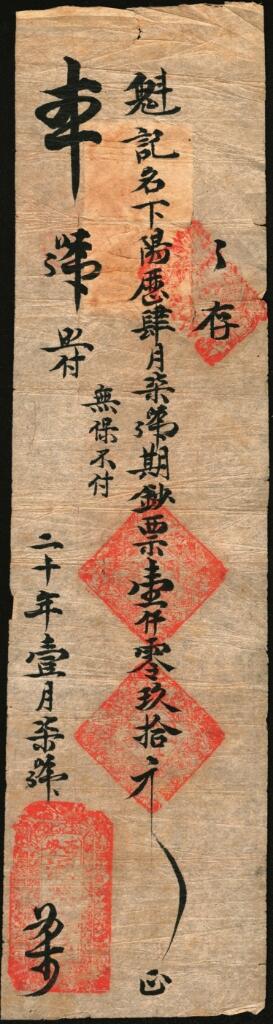 存
魁記名下陽曆肆月柒號期鈔票壹仟零玖拾元正
無保不付
車號
照付
二十年壹月柒號